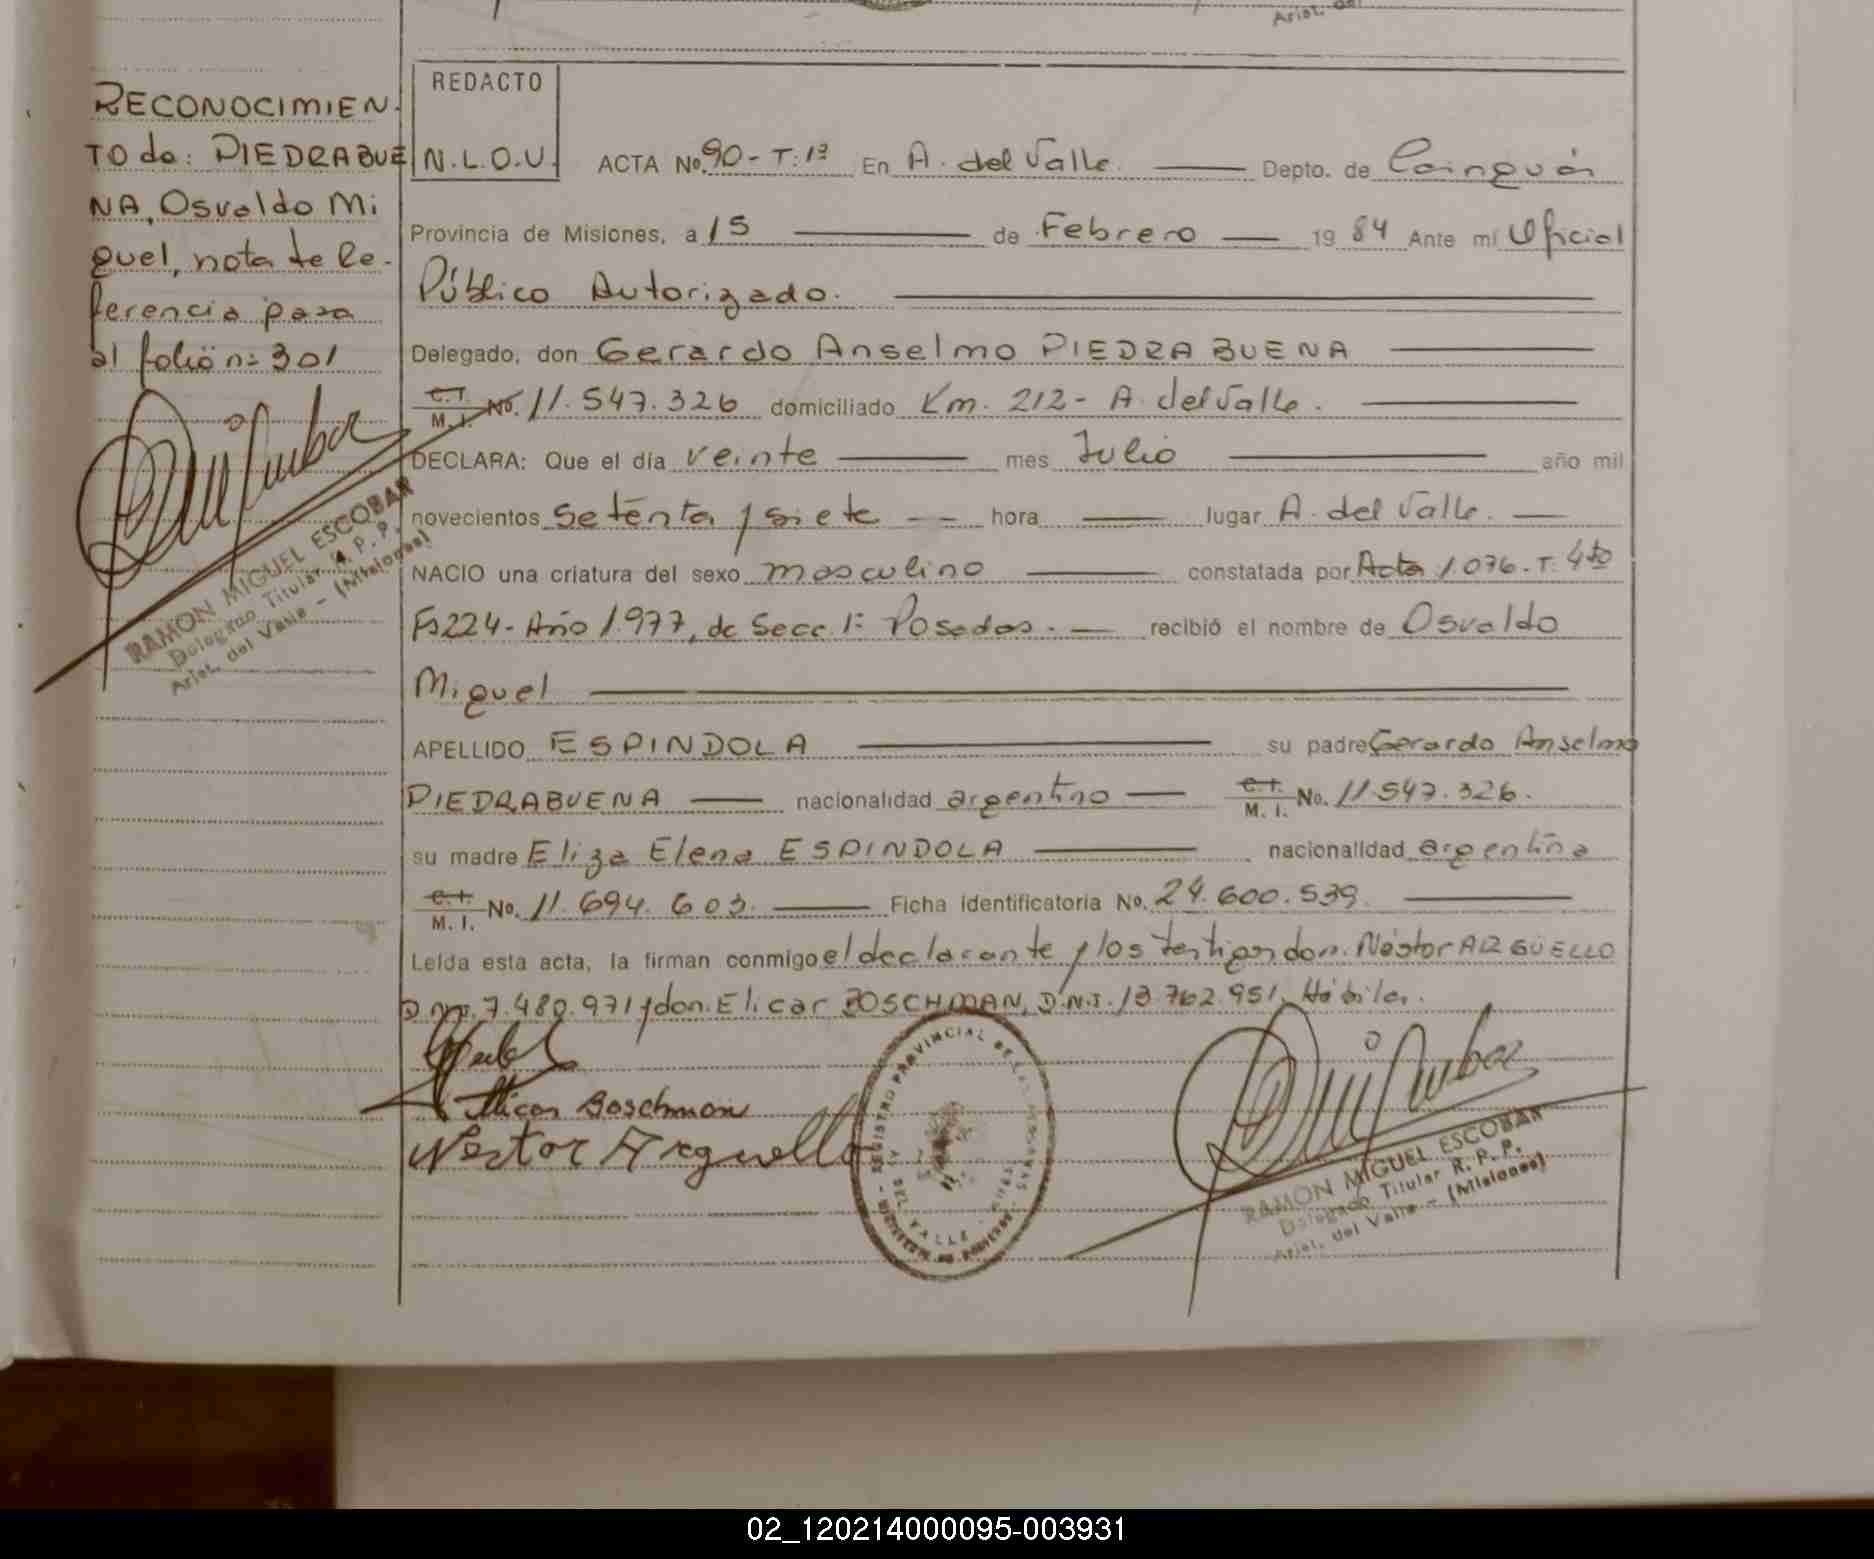 RECONOCIMIEN-
TO de: PIEDRABUE
NA, Osvaldo Mi
guel, nota de Re-
ferencia pasa
al folio nº 301
RAMON MIGUEL ESCOBAR
Delegado Titular R. P. P.
Arist. del Valle - (Misiones)
REDACTO
N.L.O.V.
ACTA No. 90 - T: 1º En A. del Valle. Depto. de Cainguás
Provincia de Misiones, a 15 de Febrero 1984 Ante mí Oficial
Público Autorizado.
Delegado, don Gerardo Anselmo PIEDRABUENA
C.I.
M. I. No. 11.547.326 domiciliado Km. 212 - A. del Valle.
DECLARA: Que el día veinte mes Julio año mil
novecientos setenta y siete hora lugar A. del Valle.
NACIO una criatura del sexo masculino constatada por Acta 1.076 - T. 4to
Fs 224 - Año 1.977, de Secc. 1º Posadas. recibió el nombre de Osvaldo
Miguel
APELLIDO ESPINDOLA su padre Gerardo Anselmo
PIEDRABUENA nacionalidad argentino C.I.
M. I. No. 11.547.326.
su madre Eliza Elena ESPINDOLA nacionalidad argentina
C.I.
M. I. No. 11.694.603. Ficha Identificatoria No. 24.600.539.
Leída esta acta, la firman conmigo el declarante y los testigos don. Néstor ARGUELLO
D.N.I. 7.480.971 y don. Elicar BOSCHMAN, D.N.I. 13.762.951. Hábiles.
Elicar Boschman
Nestor Arguello
REGISTRO PROVINCIAL DE LAS PERSONAS
DEL VALLE
RAMON MIGUEL ESCOBAR
Delegado Titular R. P. P.
Arist. del Valle - (Misiones)
02_120214000095-003931